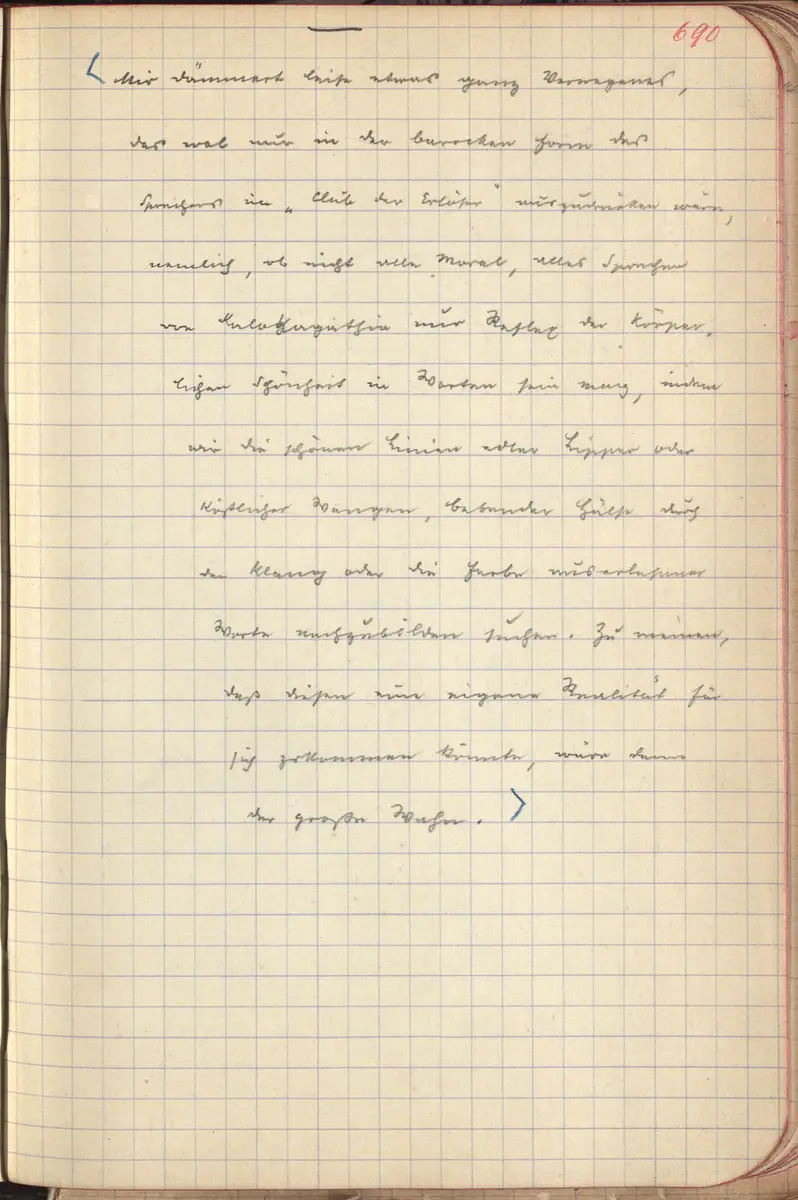 690
< Mir dämmert leise etwas ganz Verwegenes,
das wol nur in der barocken Form des
Sprechers im „Club der Erlöser“ auszudrücken wäre,
nemlich, ob nicht alle Moral, alles Sprechen
von Kalokagathia nur Reflex der körper-
lichen Schönheit in Worten sein mag, indem
wir die schönen Linien edler Lippen oder
köstlicher Wangen, bebender Hälse durch
den Klang oder die Farbe auserlesener
Worte nachzubilden suchen. Zu meinen,
daß diesen eine eigene Realität für
sich zukommen könnte, wäre dann
der große Wahn. >